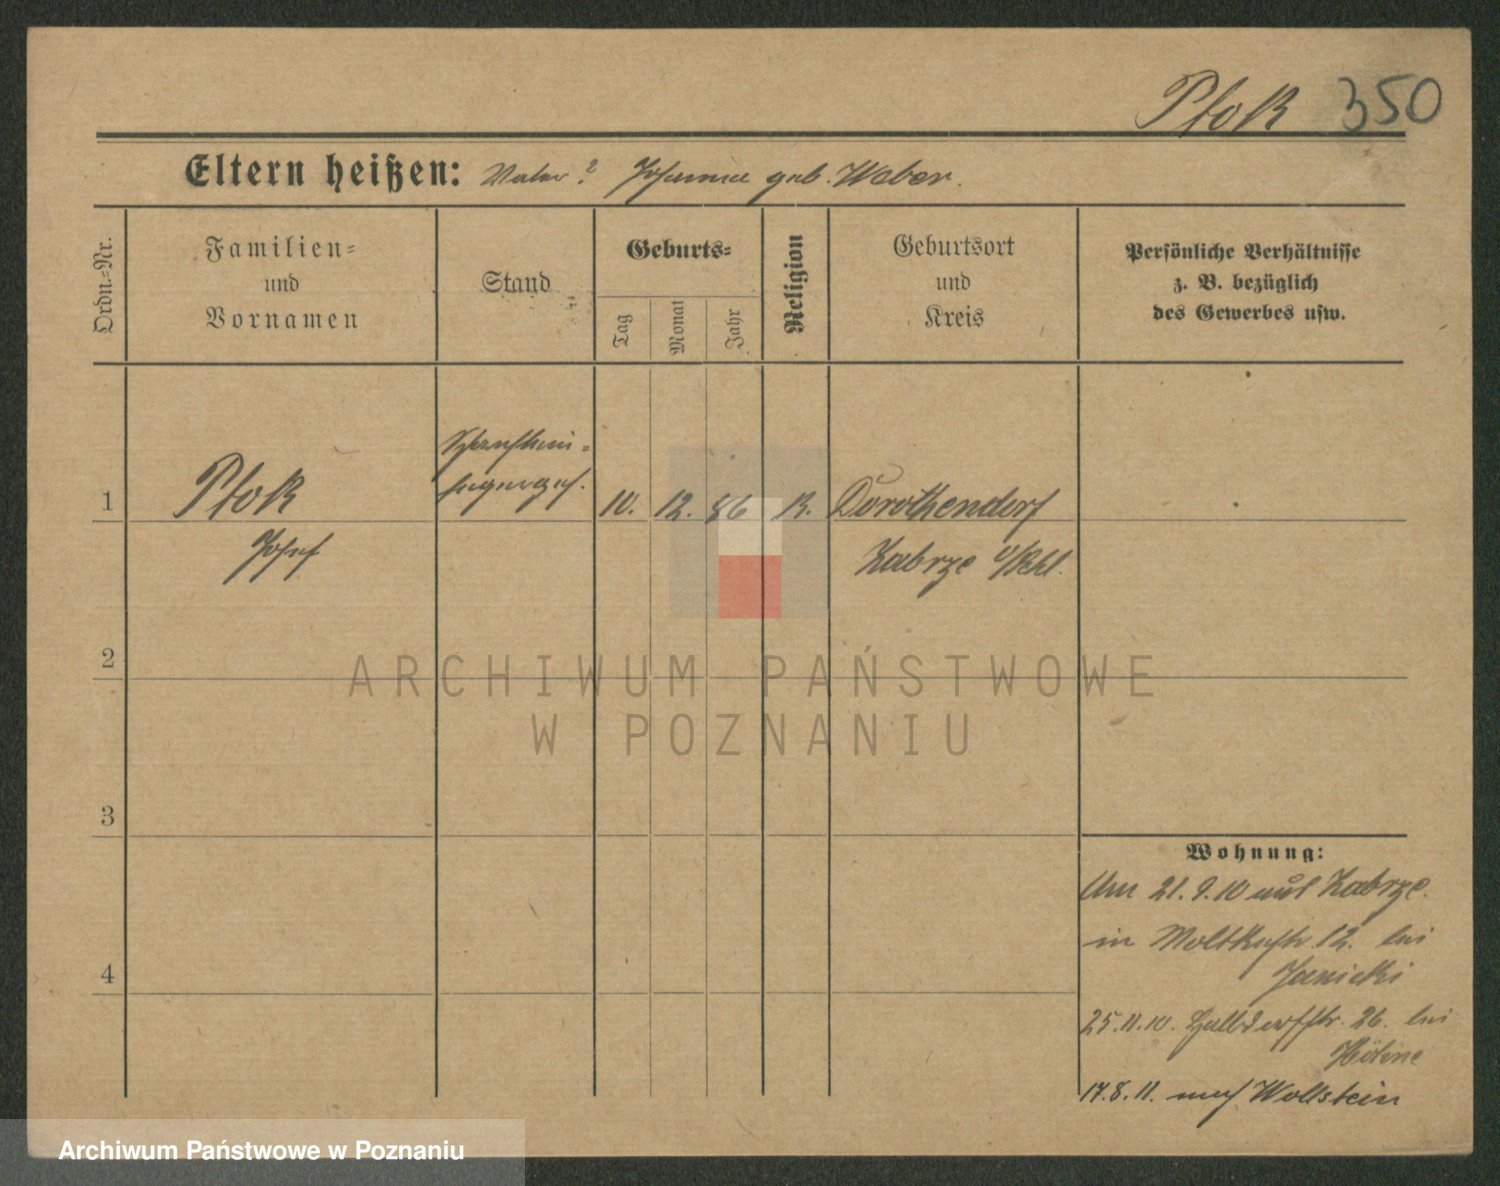 Ptok 350
Eltern heißen: Vater? Johanna geb. Weber.
Ordn.-Nr.
Familien-
und
Vornamen
Stand
Geburts-
Tag
Monat
Jahr
Religion
Geburtsort
und
Kreis
Persönliche Verhältnisse
z. B. bezüglich
des Gewerbes usw.
1
Ptok
Josef
Schornstein-
fegerges.
10. 12. 86 K.
Dorothendorf
Zabrze o/Schl.
2
3
4
Wohnung:
Am 21.9.10 aus Zabrze.
in Moltkestr. 12. bei
Janicki
25.11.10. Halbdorfstr. 26. bei
Höhne
17.8.11. nach Wollstein
ARCHIWUM PAŃSTWOWE
W POZNANIU
Archiwum Państwowe w Poznaniu